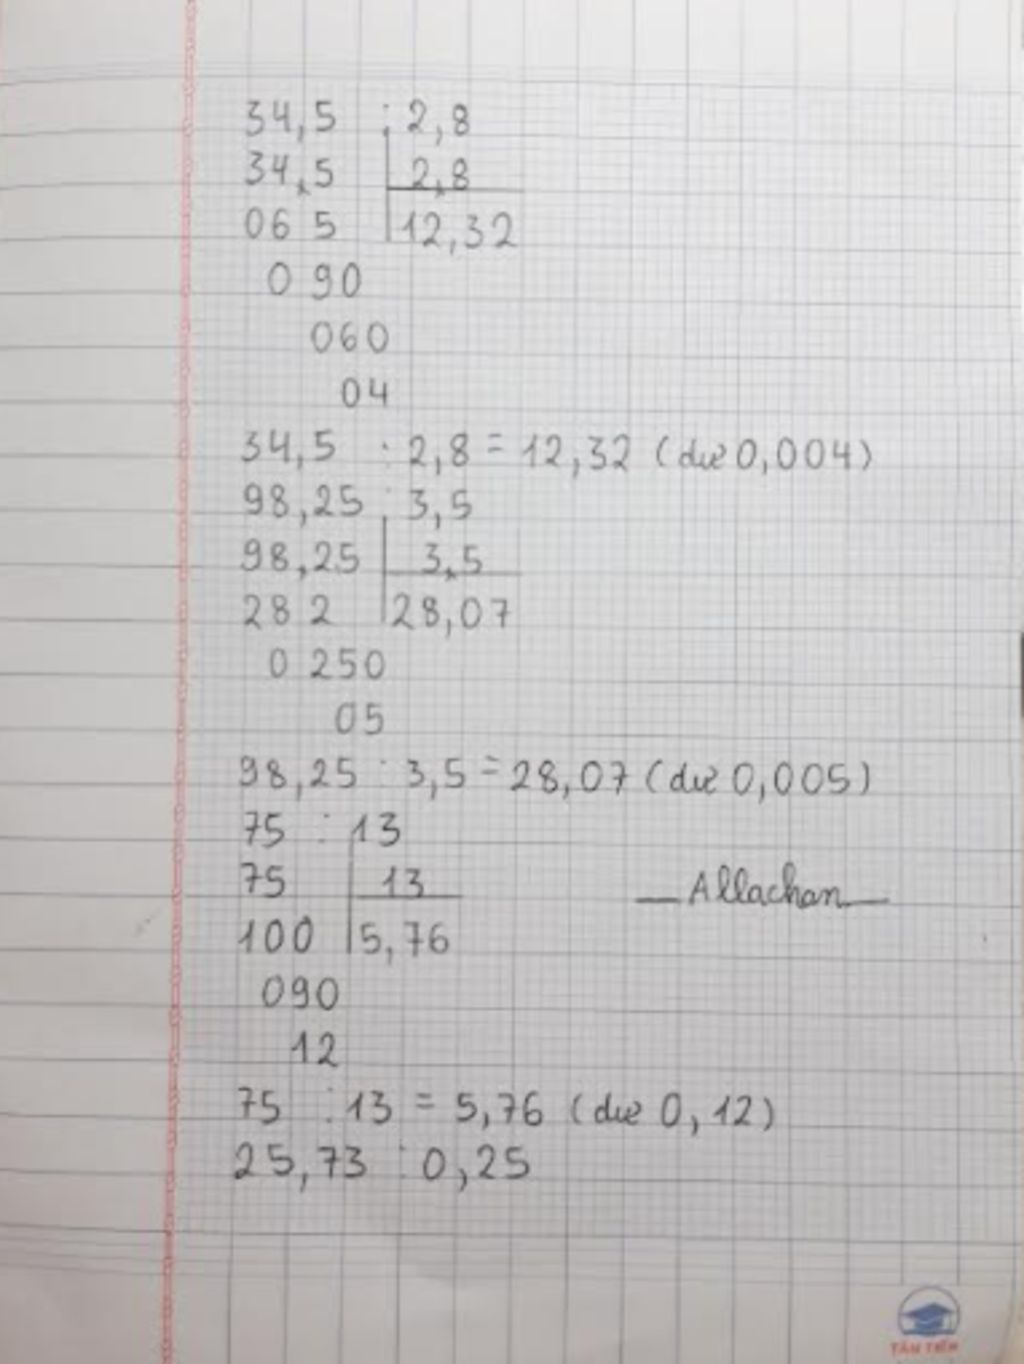 34,5 : 2,8
34,5 2,8
06 5 12,32
0 90
060
04
34,5 : 2,8 = 12,32 (dư 0,004)
98,25 : 3,5
98,25 3,5
28 2 28,07
0 250
05
98,25 : 3,5 = 28,07 (dư 0,005)
75 : 13
75 13
— Allachan —
100 5,76
090
12
75 : 13 = 5,76 (dư 0,12)
25,73 : 0,25
TÂN TIẾN